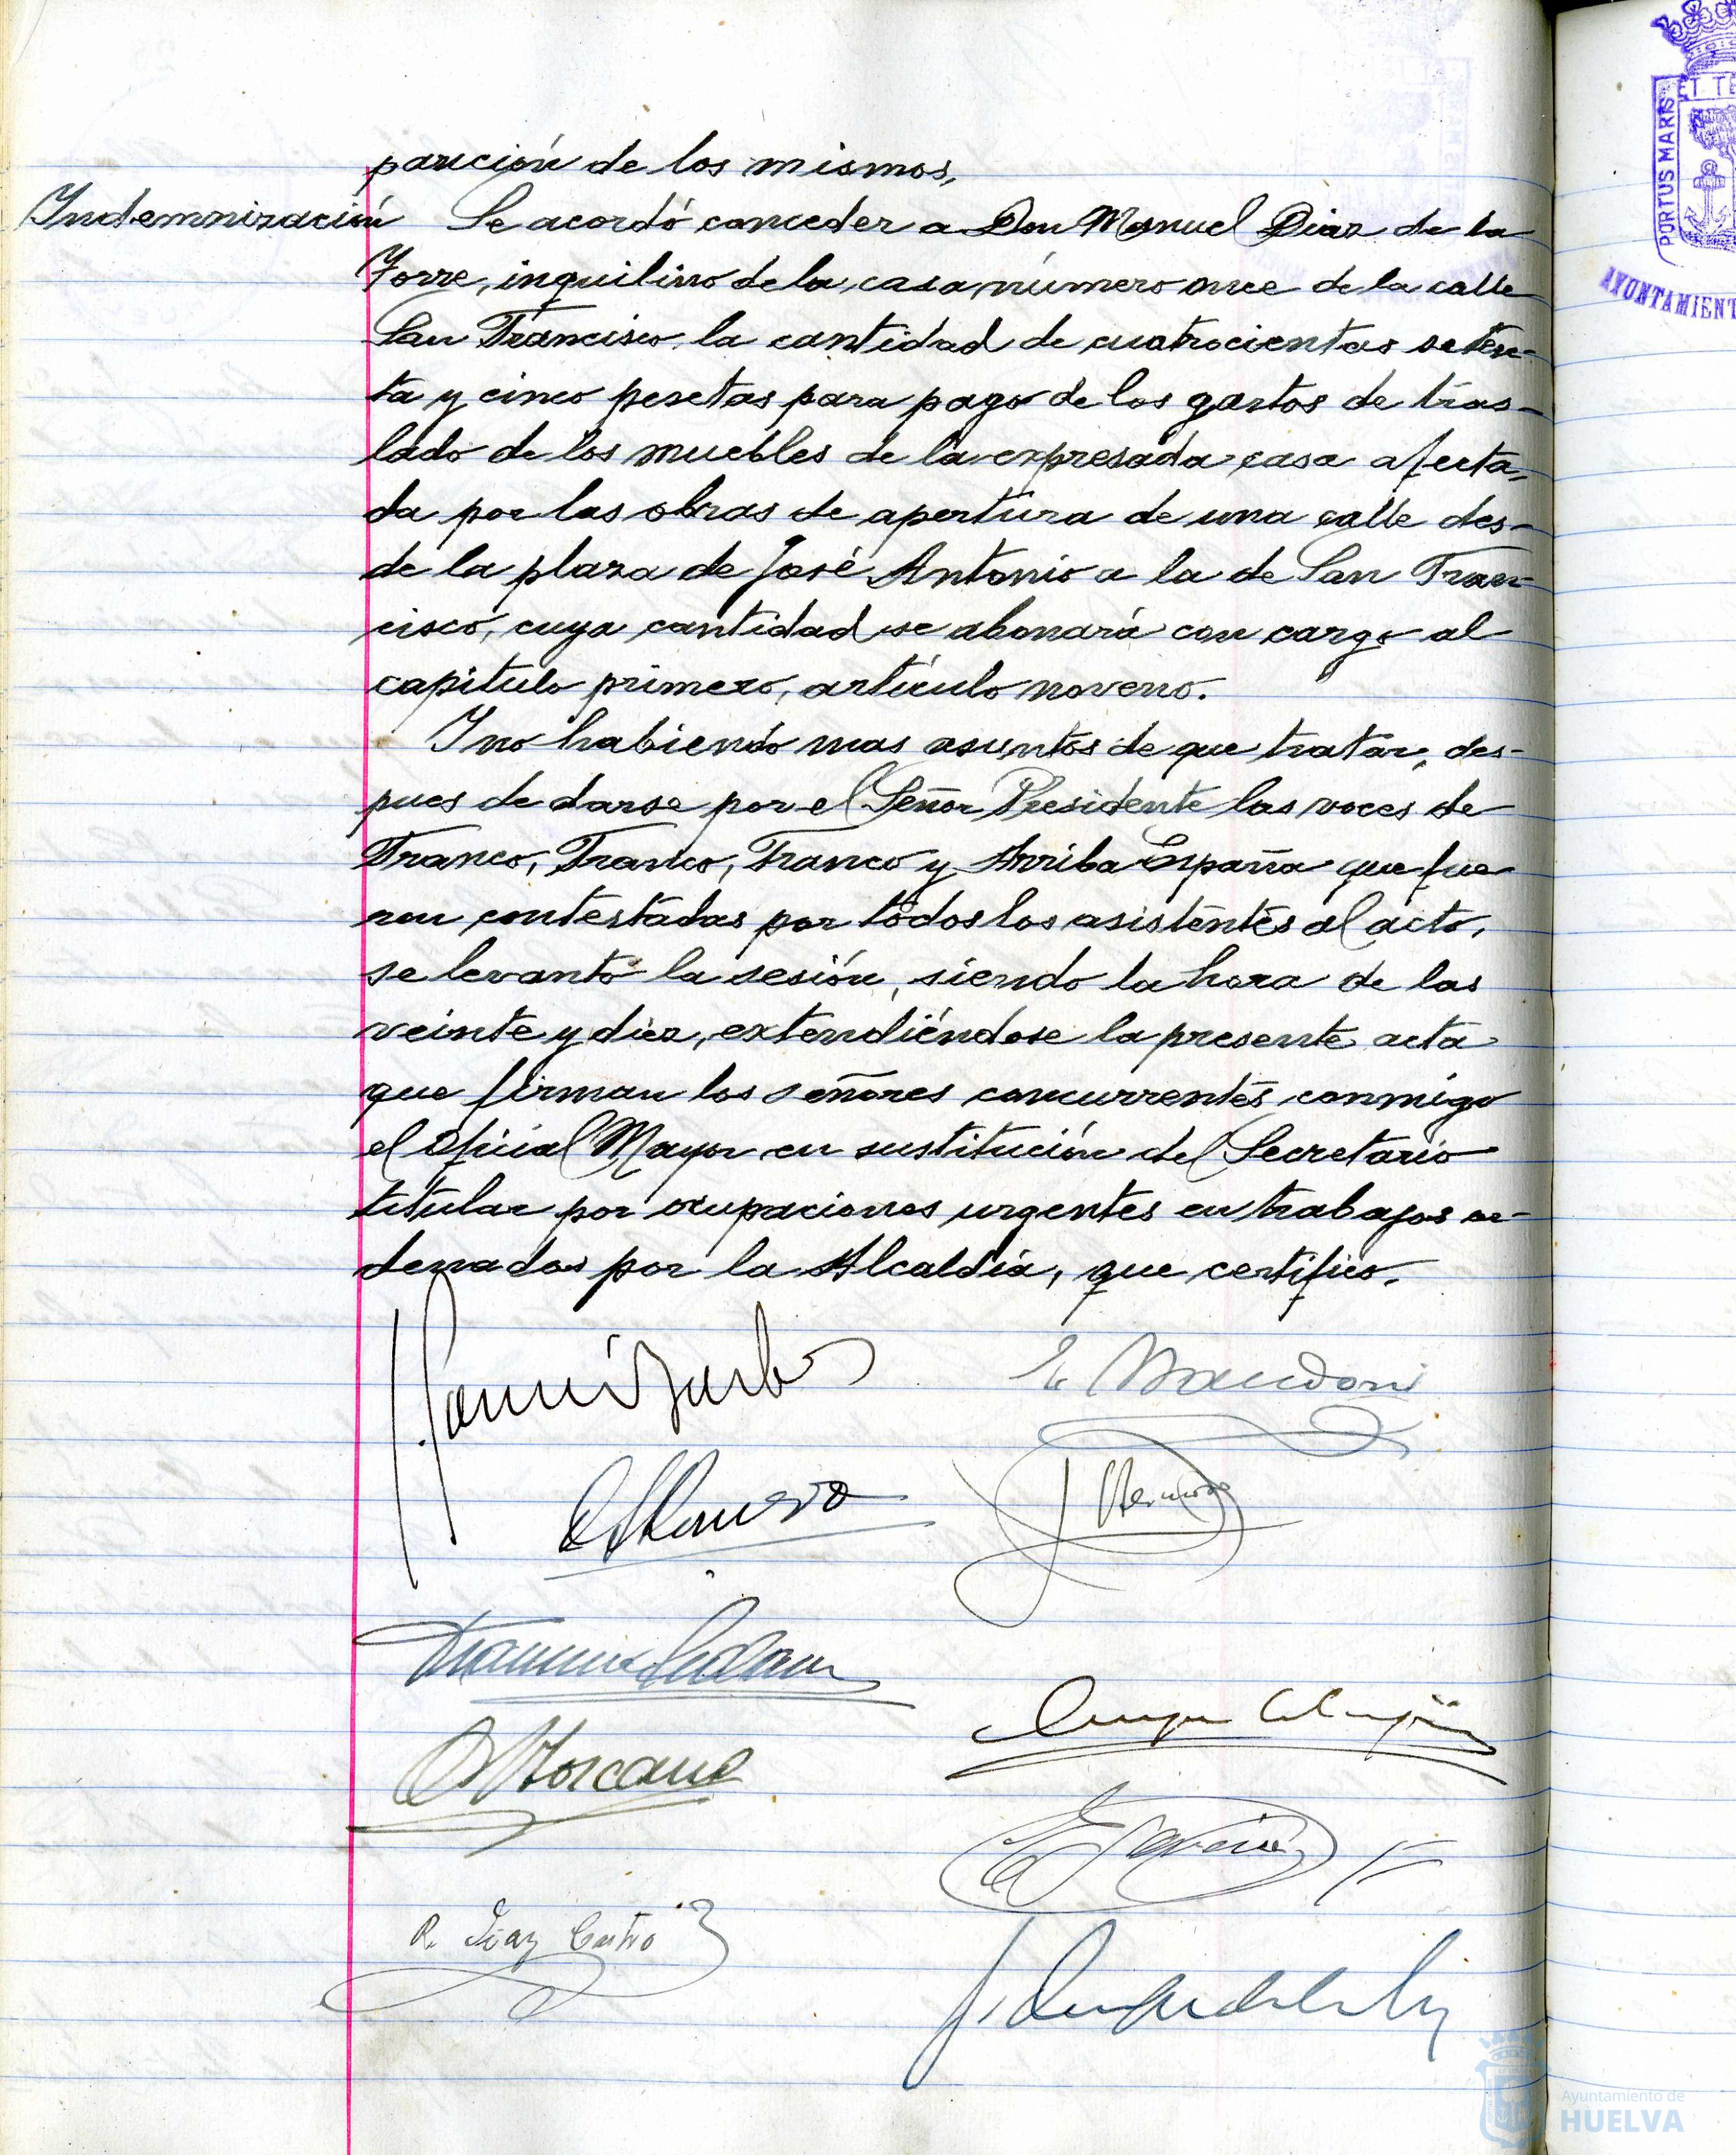 parición de los mismos,
Indemnización Se acordó conceder a Don Manuel Diaz de la
Torre, inquilino de la casa número once de la calle
San Francisco la cantidad de cuatrocientas seten-
ta y cinco pesetas para pago de los gastos de tras-
lado de los muebles de la expresada casa afecta-
da por las obras de apertura de una calle des-
de la plaza de José Antonio a la de San Fran-
cisco, cuya cantidad se abonará con cargo al
capitulo primero, artículo noveno.
Y no habiendo mas asuntos de que tratar, des-
pues de darse por el Señor Presidente las voces de
Franco, Franco, Franco y Arriba España que fue
ron contestadas por todos los asistentes al acto,
se levantó la sesión, siendo la hora de las
veinte y diez, extendiéndose la presente acta
que firman los señores concurrentes conmigo
el Oficial Mayor en sustitución del Secretario
titular por ocupaciones urgentes en trabajos or-
denados por la Alcaldía, que certifico.
R. Diaz Castro
PORTUS MARIS
ET TE
AYUNTAMIENT
Ayuntamiento de
HUELVA